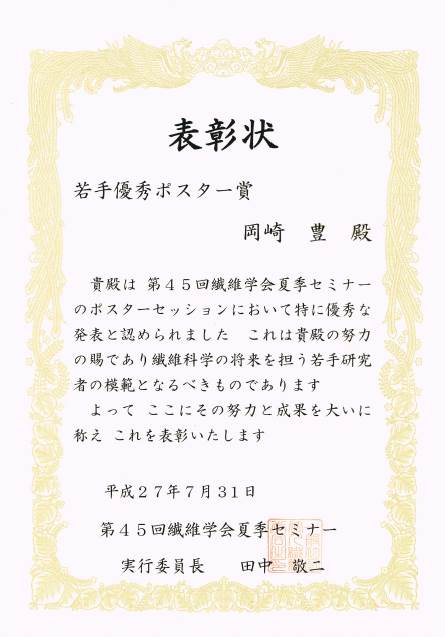 表彰状
若手優秀ポスター賞
岡崎　豊　殿
貴殿は 第４５回繊維学会夏季セミナー
のポスターセッションにおいて特に優秀な
発表と認められました　これは貴殿の努力
の賜であり繊維科学の将来を担う若手研究
者の模範となるべきものであります
よって ここにその努力と成果を大いに
称え これを表彰いたします
平成２７年７月３１日
第４５回繊維学会夏季セミナー
実行委員長　　田中　敬二